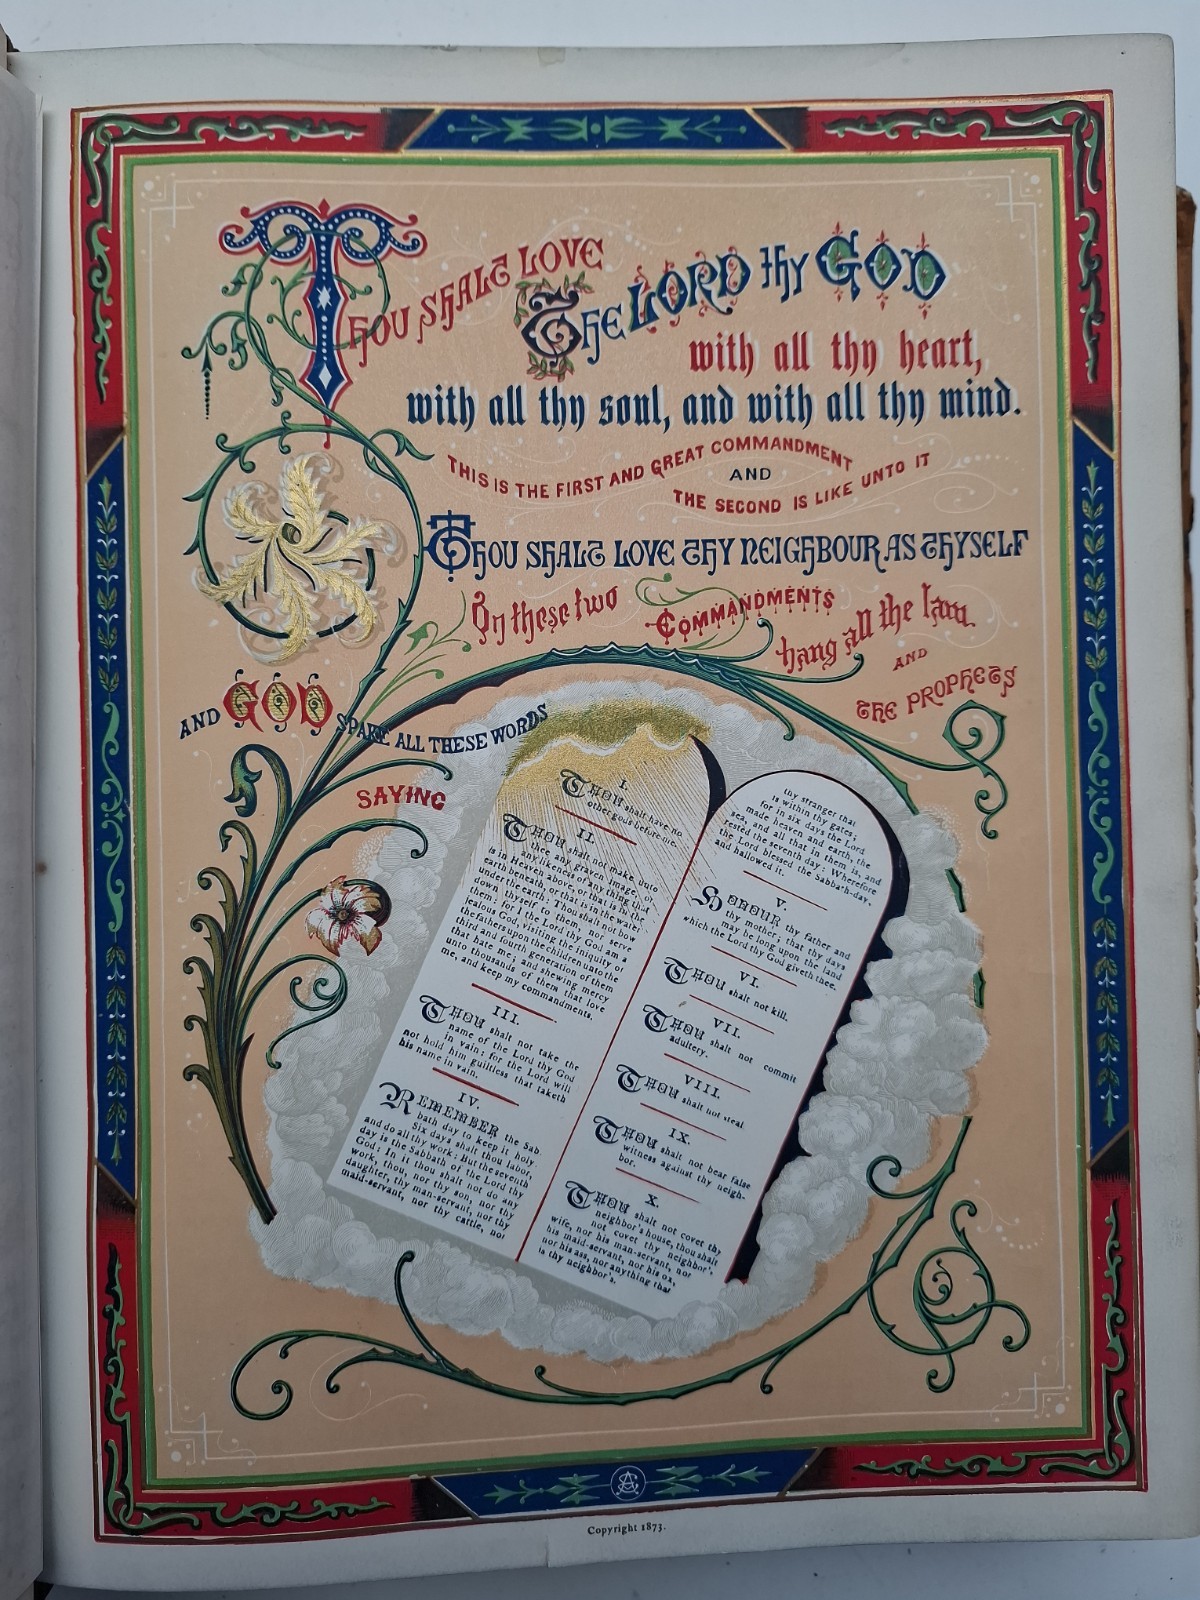 THOU SHALT LOVE
THE LORD thy GOD
with all thy heart,
with all thy soul, and with all thy mind.
THIS IS THE FIRST AND GREAT COMMANDMENT
AND
THE SECOND IS LIKE UNTO IT
THOU SHALT LOVE THY NEIGHBOUR AS THYSELF
On these two
COMMANDMENTS
hang all the law
AND
THE PROPHETS
AND GOD SPAKE ALL THESE WORDS
SAYING
I.
THOU shall have no
other gods before me.
II.
THOU shalt not make unto
thee any graven image, or
any likeness of any thing that
is in Heaven above, or that is in the
earth beneath, or that is in the water
under the earth: Thou shalt not bow
down thyself to them, nor serve
them: for I the Lord thy God am a
jealous God, visiting the iniquity of
the fathers upon the children unto the
third and fourth generation of them
that hate me; and shewing mercy
unto thousands of them that love
me, and keep my commandments.
III.
THOU shalt not take the
name of the Lord thy God
in vain: for the Lord will
not hold him guiltless that taketh
his name in vain.
IV.
REMEMBER the Sab-
bath day to keep it holy.
Six days shalt thou labor,
and do all thy work: But the seventh
day is the Sabbath of the Lord thy
God: In it thou shalt not do any
work, thou, nor thy son, nor thy
daughter, thy man-servant, nor thy
maid-servant, nor thy cattle, nor
thy stranger that
is within thy gates;
for in six days the Lord
made heaven and earth, the
sea, and all that in them is, and
rested the seventh day: Wherefore
the Lord blessed the Sabbath-day,
and hallowed it.
V.
HONOUR thy father and
thy mother; that thy days
may be long upon the land
which the Lord thy God giveth thee.
VI.
THOU shalt not kill.
VII.
THOU shalt not commit
adultery.
VIII.
THOU shalt not steal
IX.
THOU shalt not bear false
witness against thy neigh-
bor.
X.
THOU shalt not covet thy
neighbor's house, thou shalt
not covet thy neighbor's
wife, nor his man-servant, nor
his maid-servant, nor his ox,
nor his ass, nor anything that
is thy neighbor's.
Copyright 1873.